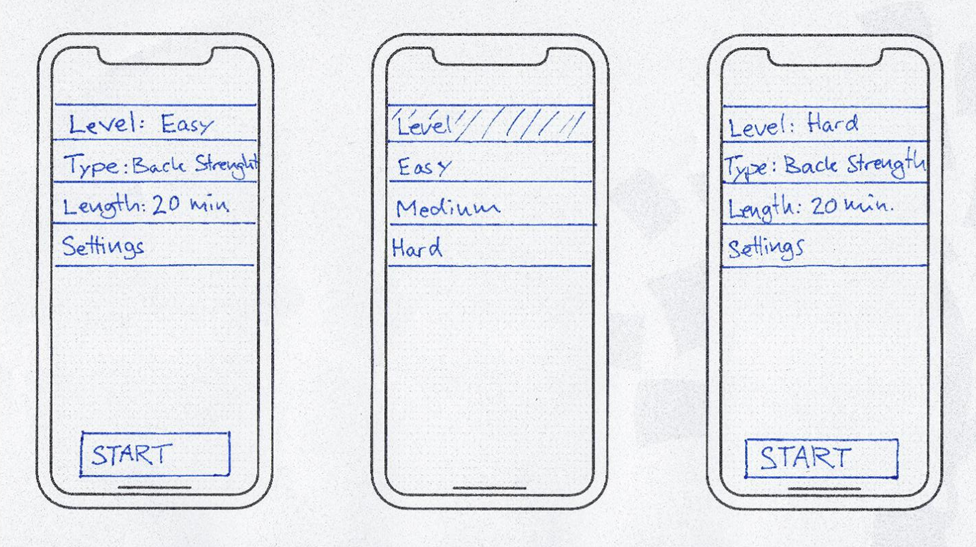 Level: Easy
Type: Back Strenght
Length: 20 min
Settings
START
Level
Easy
Medium
Hard
Level: Hard
Type: Back Strength
Length: 20 min.
Settings
START